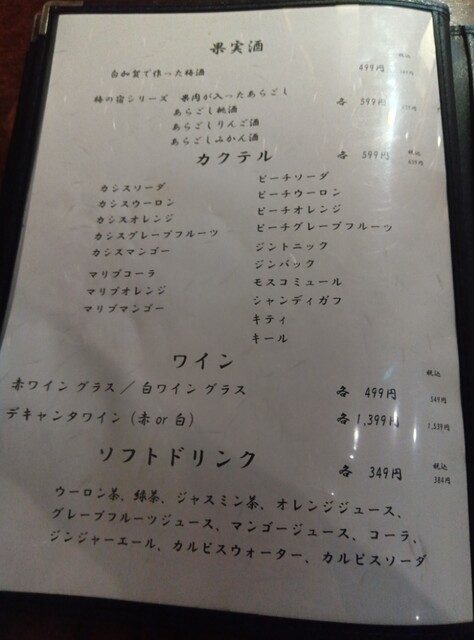 果実酒
税込
白加賀で作った梅酒 499円
梅の宿シリーズ 果肉が入ったあらごし 各 599円
あらごし桃酒
あらごしりんご酒
あらごしみかん酒
カクテル 各 599円
税込
カシスソーダ
カシスウーロン
カシスオレンジ
カシスグレープフルーツ
カシスマンゴー
マリブコーラ
マリブオレンジ
マリブマンゴー
ピーチソーダ
ピーチウーロン
ピーチオレンジ
ピーチグレープフルーツ
ジントニック
ジンバック
モスコミュール
シャンディガフ
キティ
キール
ワイン
税込
赤ワイン グラス / 白ワイン グラス 各 499円 549円
デキャンタワイン (赤 or 白) 各 1,399円 1,539円
ソフトドリンク 各 349円
税込
384円
ウーロン茶、緑茶、ジャスミン茶、オレンジジュース、
グレープフルーツジュース、マンゴージュース、コーラ、
ジンジャーエール、カルピスウォーター、カルピスソーダ